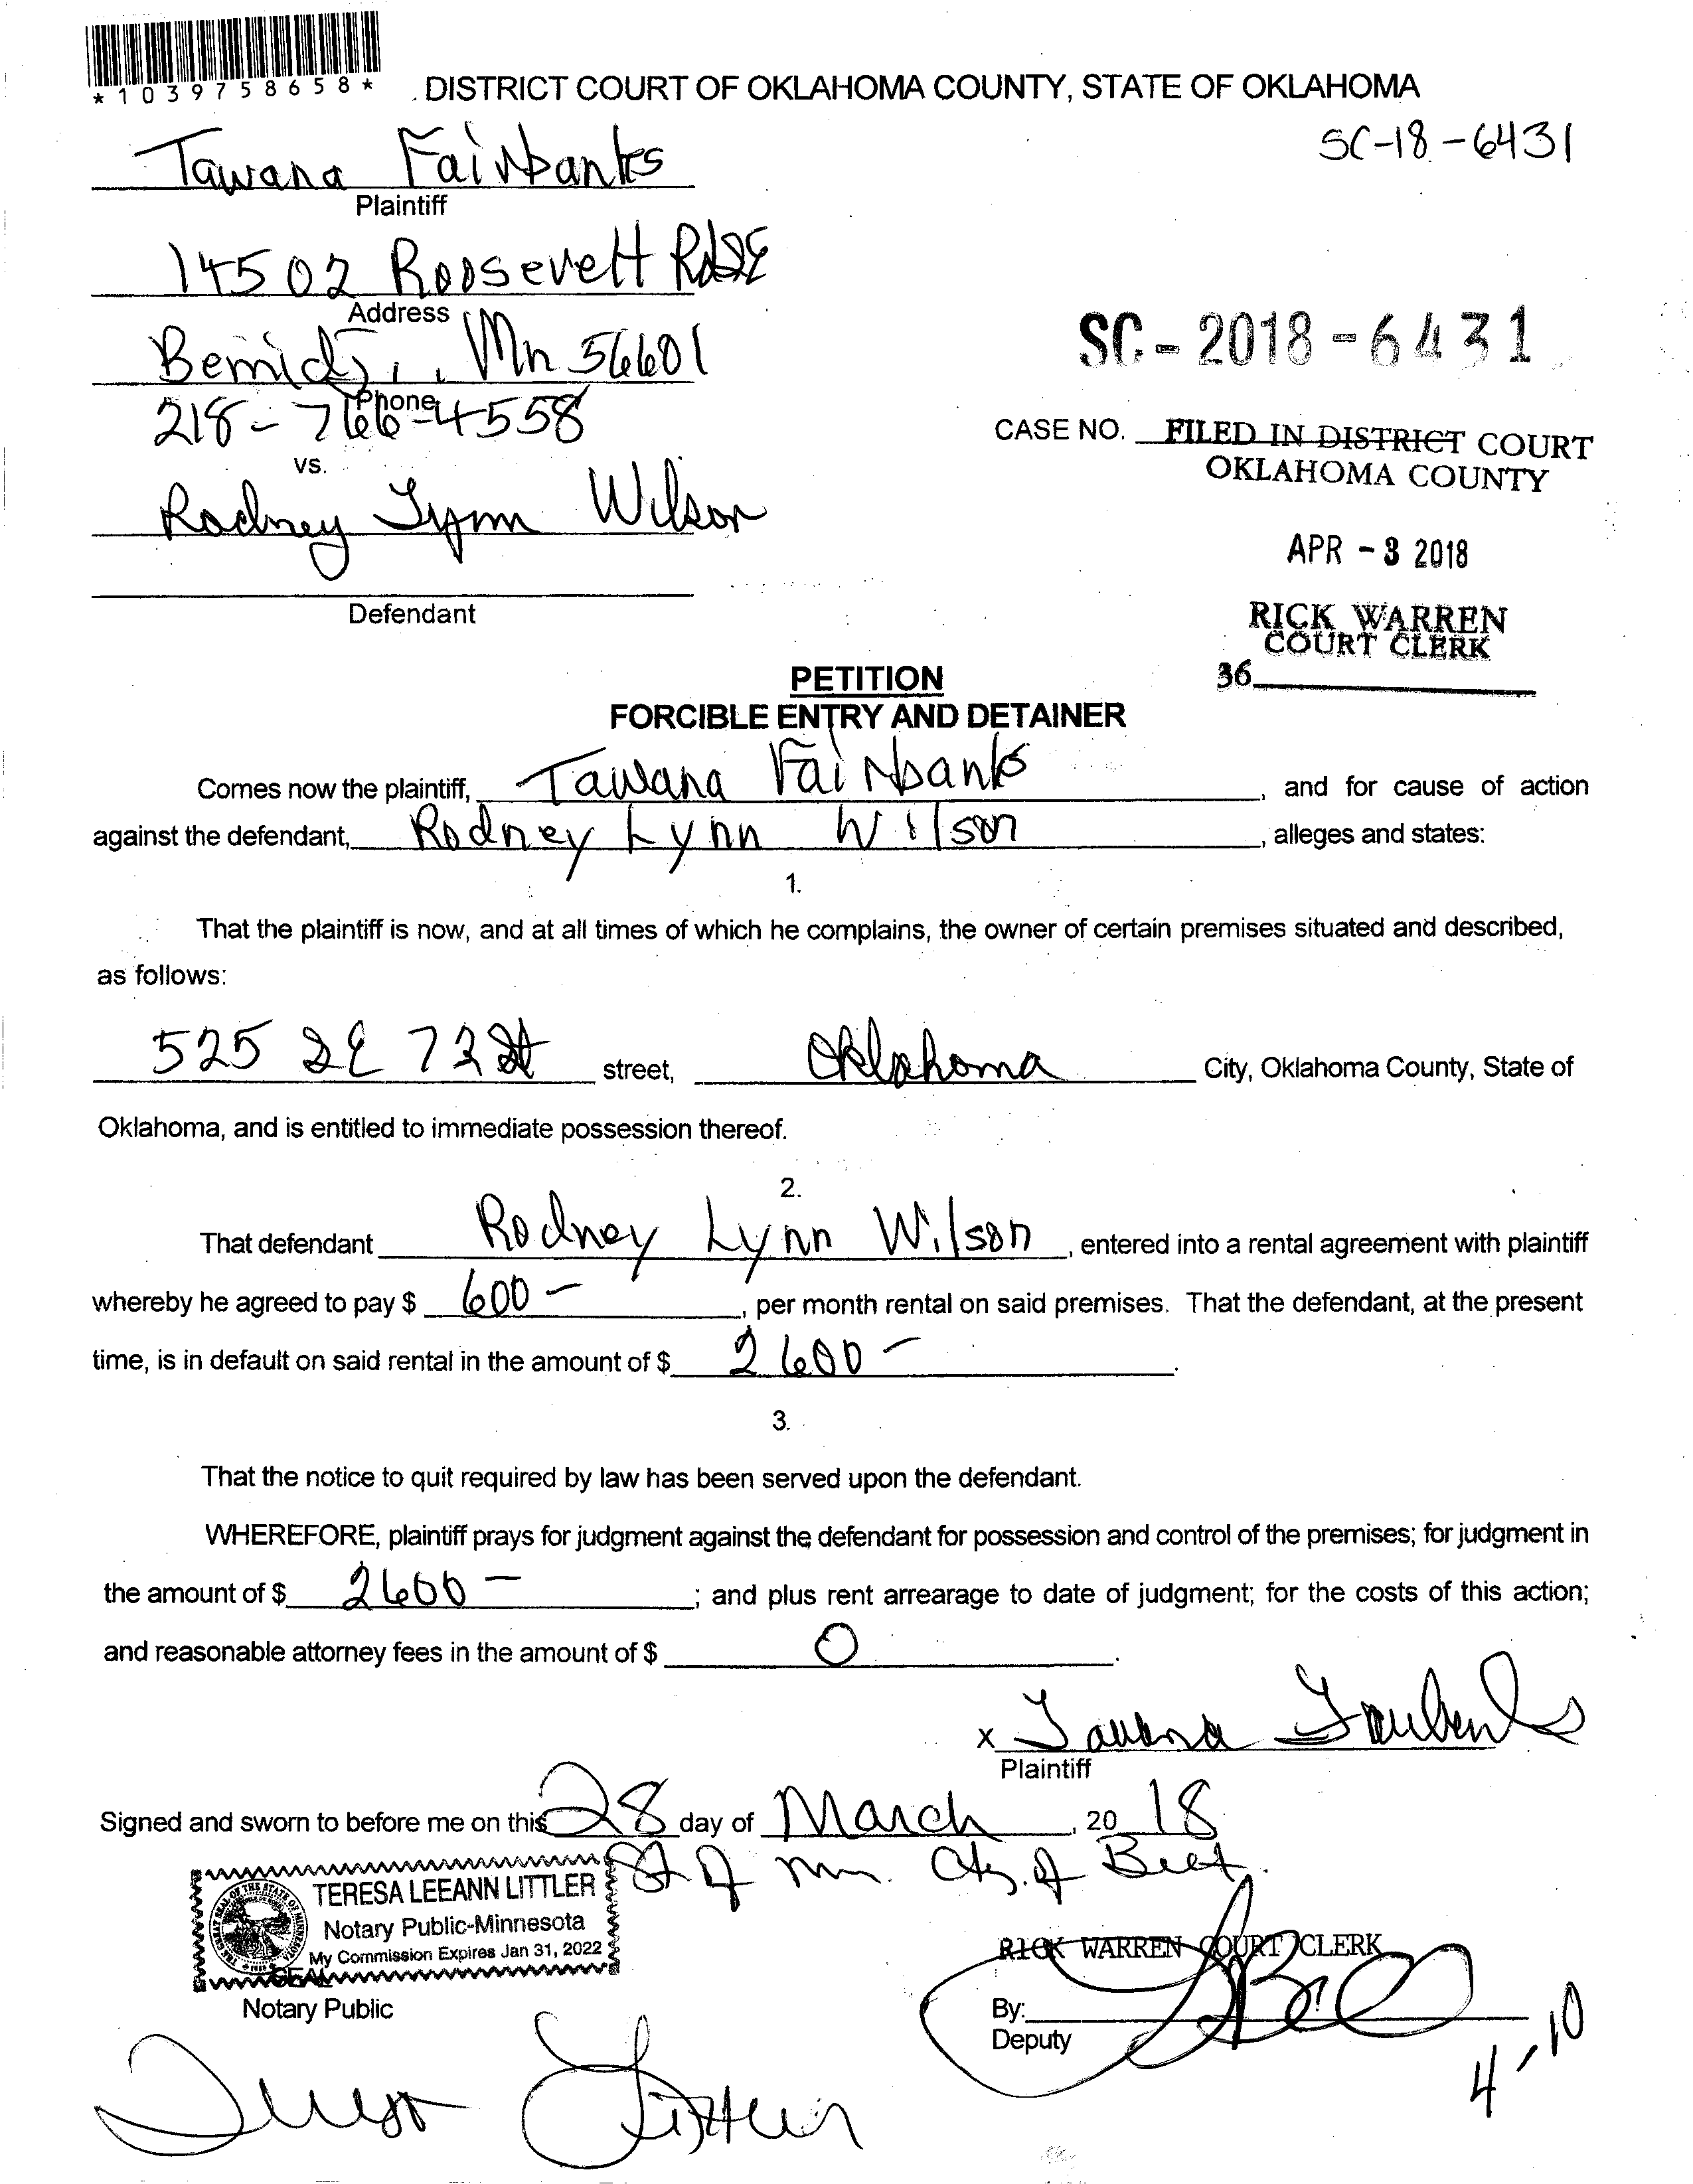 *1039758658*
DISTRICT COURT OF OKLAHOMA COUNTY, STATE OF OKLAHOMA
SC-18-6431
Tawana Fairbanks
Plaintiff
14502 Roosevelt Rd SE
Address
Bemidji, Mn 56601
Phone
218-766-4558
SC-2018-6431
CASE NO. FILED IN DISTRICT COURT
OKLAHOMA COUNTY
vs.
Rodney Lynn Wilson
APR -3 2018
Defendant
RICK WARREN
COURT CLERK
36
PETITION
FORCIBLE ENTRY AND DETAINER
Comes now the plaintiff, Tawana Fairbanks, and for cause of action
against the defendant, Rodney Lynn Wilson, alleges and states:
1.
That the plaintiff is now, and at all times of which he complains, the owner of certain premises situated and described,
as follows:
525 SE 72 St street, Oklahoma City, Oklahoma County, State of
Oklahoma, and is entitled to immediate possession thereof.
2.
That defendant Rodney Lynn Wilson, entered into a rental agreement with plaintiff
whereby he agreed to pay $ 600-, per month rental on said premises. That the defendant, at the present
time, is in default on said rental in the amount of $ 2600-.
3.
That the notice to quit required by law has been served upon the defendant.
WHEREFORE, plaintiff prays for judgment against the defendant for possession and control of the premises; for judgment in
the amount of $ 2600-; and plus rent arrearage to date of judgment; for the costs of this action;
and reasonable attorney fees in the amount of $ 0.
x Tawana Fairbanks
Plaintiff
Signed and sworn to before me on this 28 day of March, 20 18
St of Mn. Cty. of Belt.
TERESA LEEANN LITTLER
Notary Public-Minnesota
My Commission Expires Jan 31, 2022
SEAL
Notary Public
RICK WARREN COURT CLERK
By:
Deputy
4-10